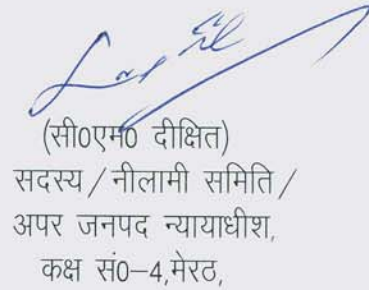 (सी0एम0 दीक्षित)
सदस्य / नीलामी समिति /
अपर जनपद न्यायाधीश,
कक्ष सं0–4,मेरठ,